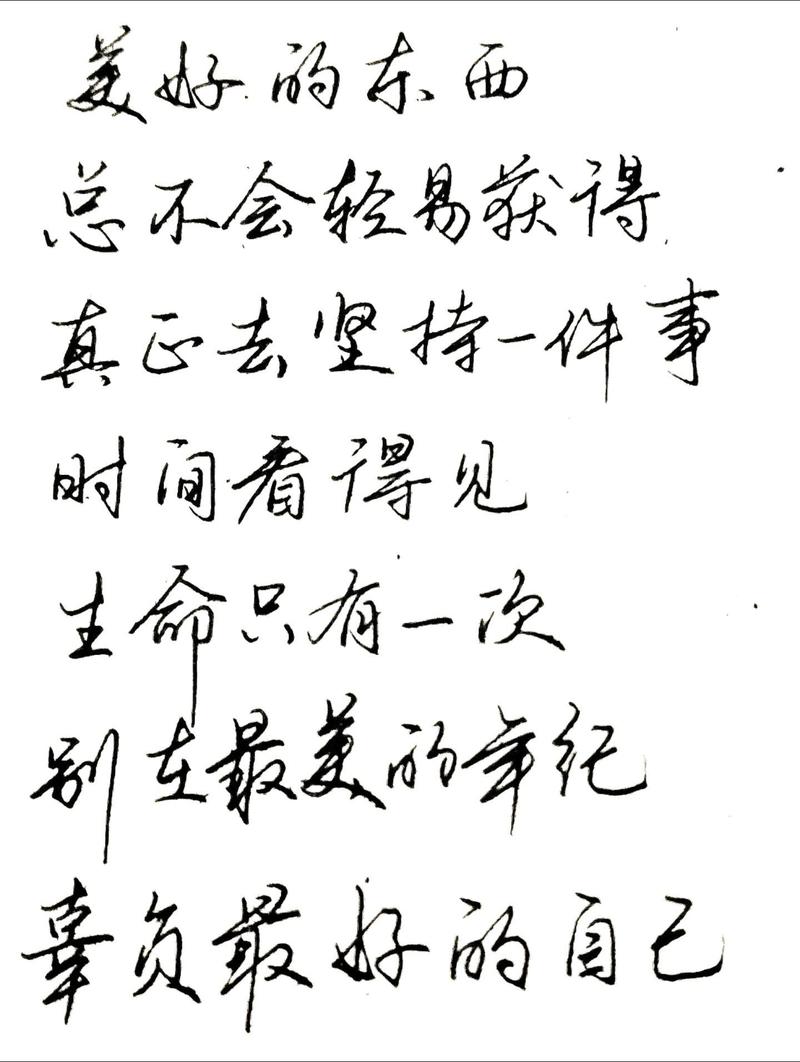 美好的东西
总不会轻易获得
真正去坚持一件事
时间看得见
生命只有一次
别在最美的年纪
辜负最好的自己